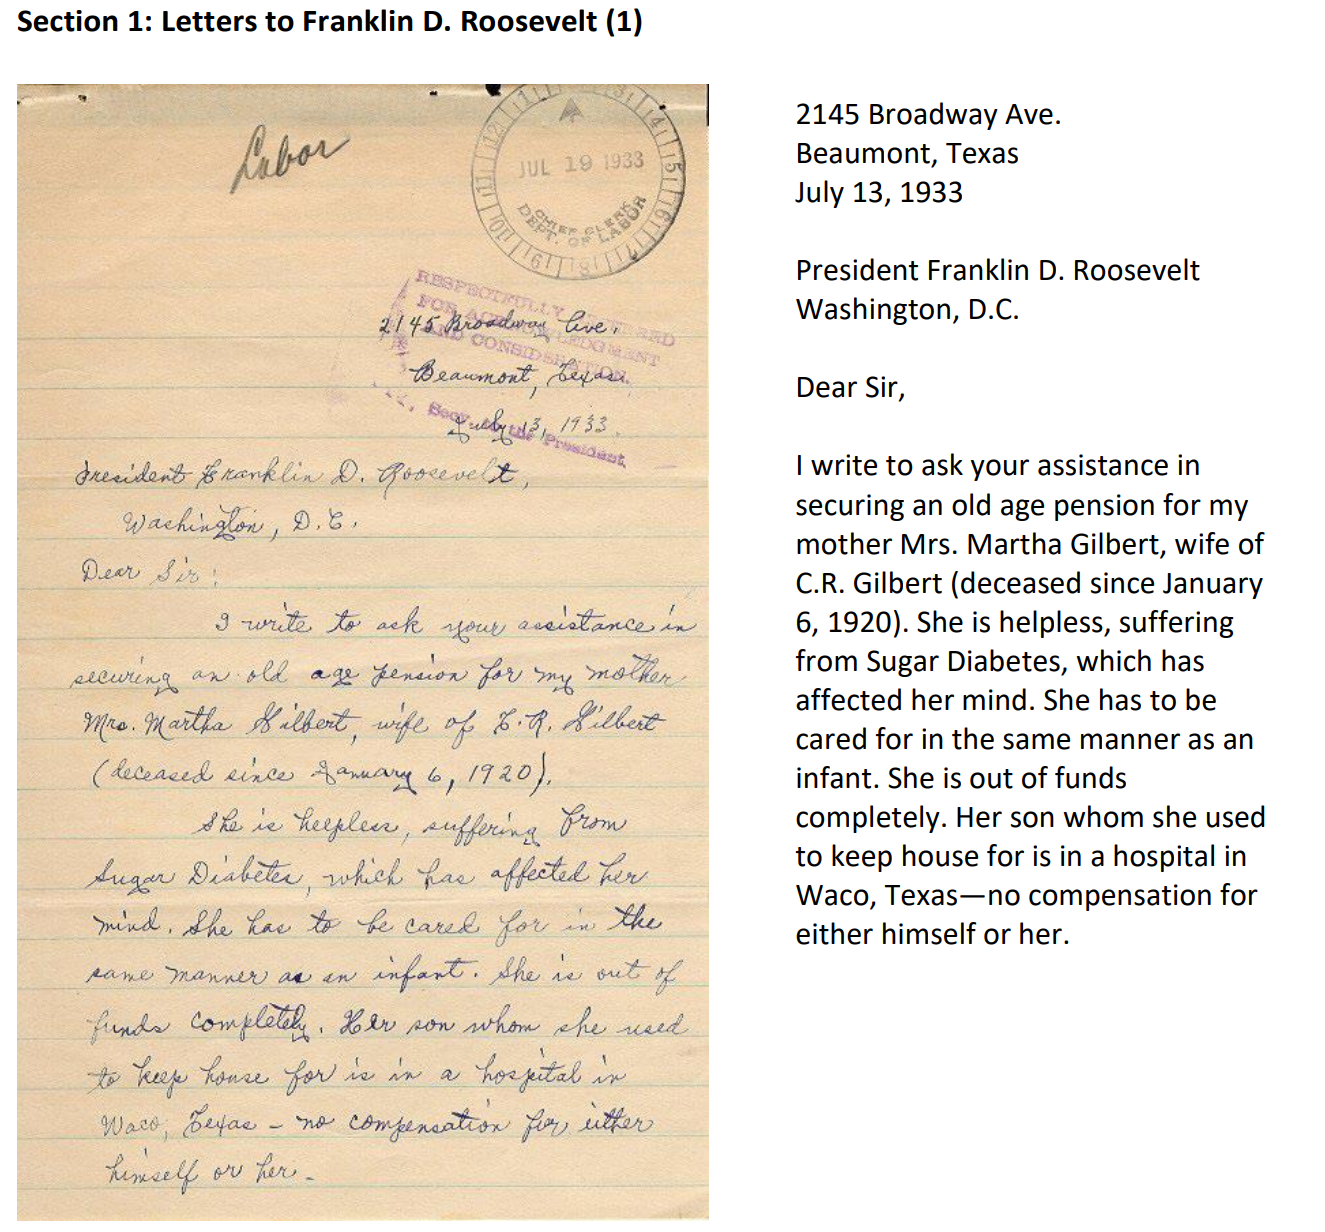 Section 1: Letters to Franklin D. Roosevelt (1)
Labor
JUL 19 1933
CHIEF CLERK
DEPT. OF LABOR
RESPECTFULLY
FOR ACKNOWLEDGMENT
AND CONSIDERATION.
Secy. to the President
2145 Broadway Ave.
Beaumont, Texas.
July 13, 1933.
President Franklin D. Roosevelt,
Washington, D.C.
Dear Sir:
I write to ask your assistance in
securing an old age pension for my mother
Mrs. Martha Gilbert, wife of C.R. Gilbert
(deceased since January 6, 1920).
She is helpless, suffering from
Sugar Diabetes, which has affected her
mind. She has to be cared for in the
same manner as an infant. She is out of
funds completely. Her son whom she used
to keep house for is in a hospital in
Waco, Texas – no compensation for either
himself or her.
2145 Broadway Ave.
Beaumont, Texas
July 13, 1933
President Franklin D. Roosevelt
Washington, D.C.
Dear Sir,
I write to ask your assistance in
securing an old age pension for my
mother Mrs. Martha Gilbert, wife of
C.R. Gilbert (deceased since January
6, 1920). She is helpless, suffering
from Sugar Diabetes, which has
affected her mind. She has to be
cared for in the same manner as an
infant. She is out of funds
completely. Her son whom she used
to keep house for is in a hospital in
Waco, Texas—no compensation for
either himself or her.